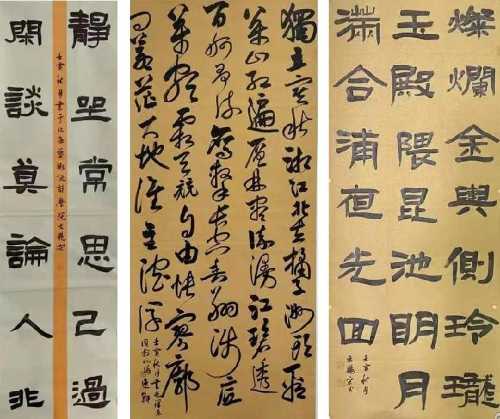 靜坐常思己過
閑談莫論人非
獨立寒秋湘江北去橘子洲頭看
萬山紅遍層林盡染漫江碧透
百舸爭流鷹擊長空魚翔淺底
萬類霜天競自由悵寥廓
問蒼茫大地誰主沉浮
燦爛金輿側玲瓏
玉殿隈昆池明月
滿合浦夜光回
壬寅秋月